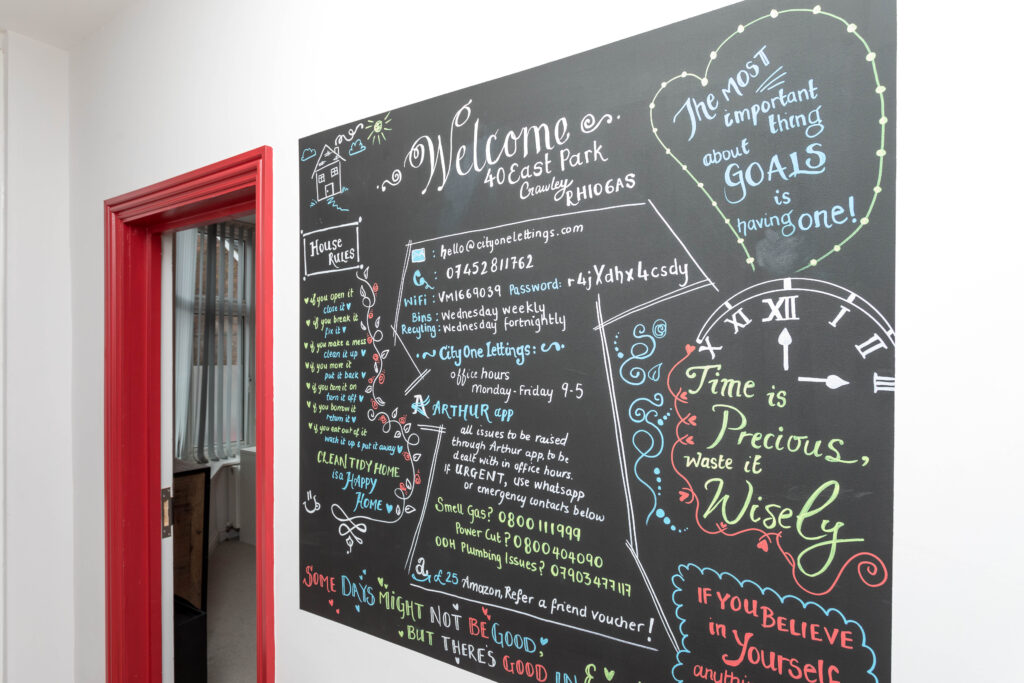 Welcome
40 East Park
Crawley
RH10 6AS
House
RULES
if you open it
close it
if you break it
fix it
if you make a mess
clean it up
if you move it
put it back
if you turn it on
turn it off
if you borrow it
return it
if you eat out of it
wash it up & put it away
CLEAN TIDY HOME
is a HAPPY
HOME
: hello@cityonelettings.com
: 07452811762
WiFi : VM1669039 Password: r4jXdhx4csdy
Bins : Wednesday weekly
Recycling: Wednesday Fortnightly
City One Lettings:
office hours
Monday-Friday 9-5
A ARTHUR app
all issues to be raised
through Arthur app, to be
dealt with in office hours.
if URGENT, use whatsapp
or emergency contacts below
Smell Gas? 0800 111 999
Power Cut? 0800 40 40 90
OOH Plumbing Issues? 07903477117
a £25 Amazon, Refer a friend voucher!
The MOST
important
thing
about
GOALS
is
having one!
X XI XII I II III
Time is
Precious,
waste it
Wisely
SOME DAYS MIGHT NOT BE GOOD,
BUT THERE'S GOOD IN
IF YOU BELIEVE
in Yourself
anything